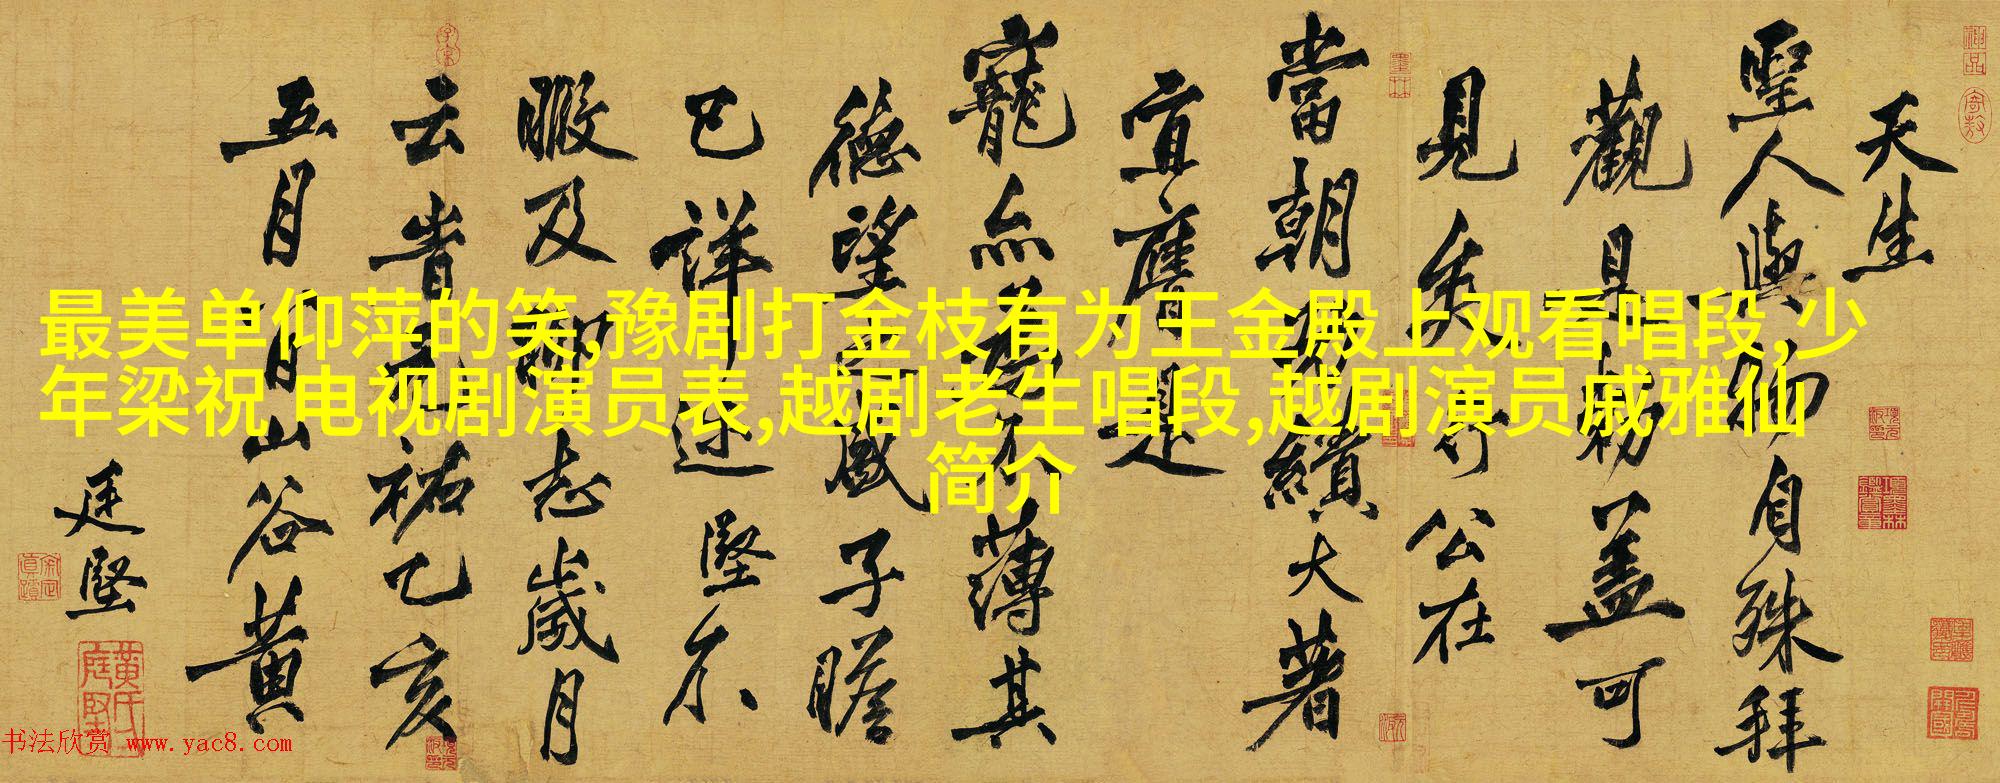 最美单仰萍的笑,豫剧打金枝有为王金殿上观看唱段,少
年梁祝 电视剧演员表,越剧老生唱段,越剧演员戚雅仙
简介
天生
聖人與物自殊拜
觀其初盖可
見矣公在
當朝功績大著
宜膺是
寵亦為不薄其
德望之盛子瞻
已詳述堅不
暇及聊志歲月
云旹元祐乙亥
五月日山谷黃
廷堅
书法欣赏 www.yac8.com